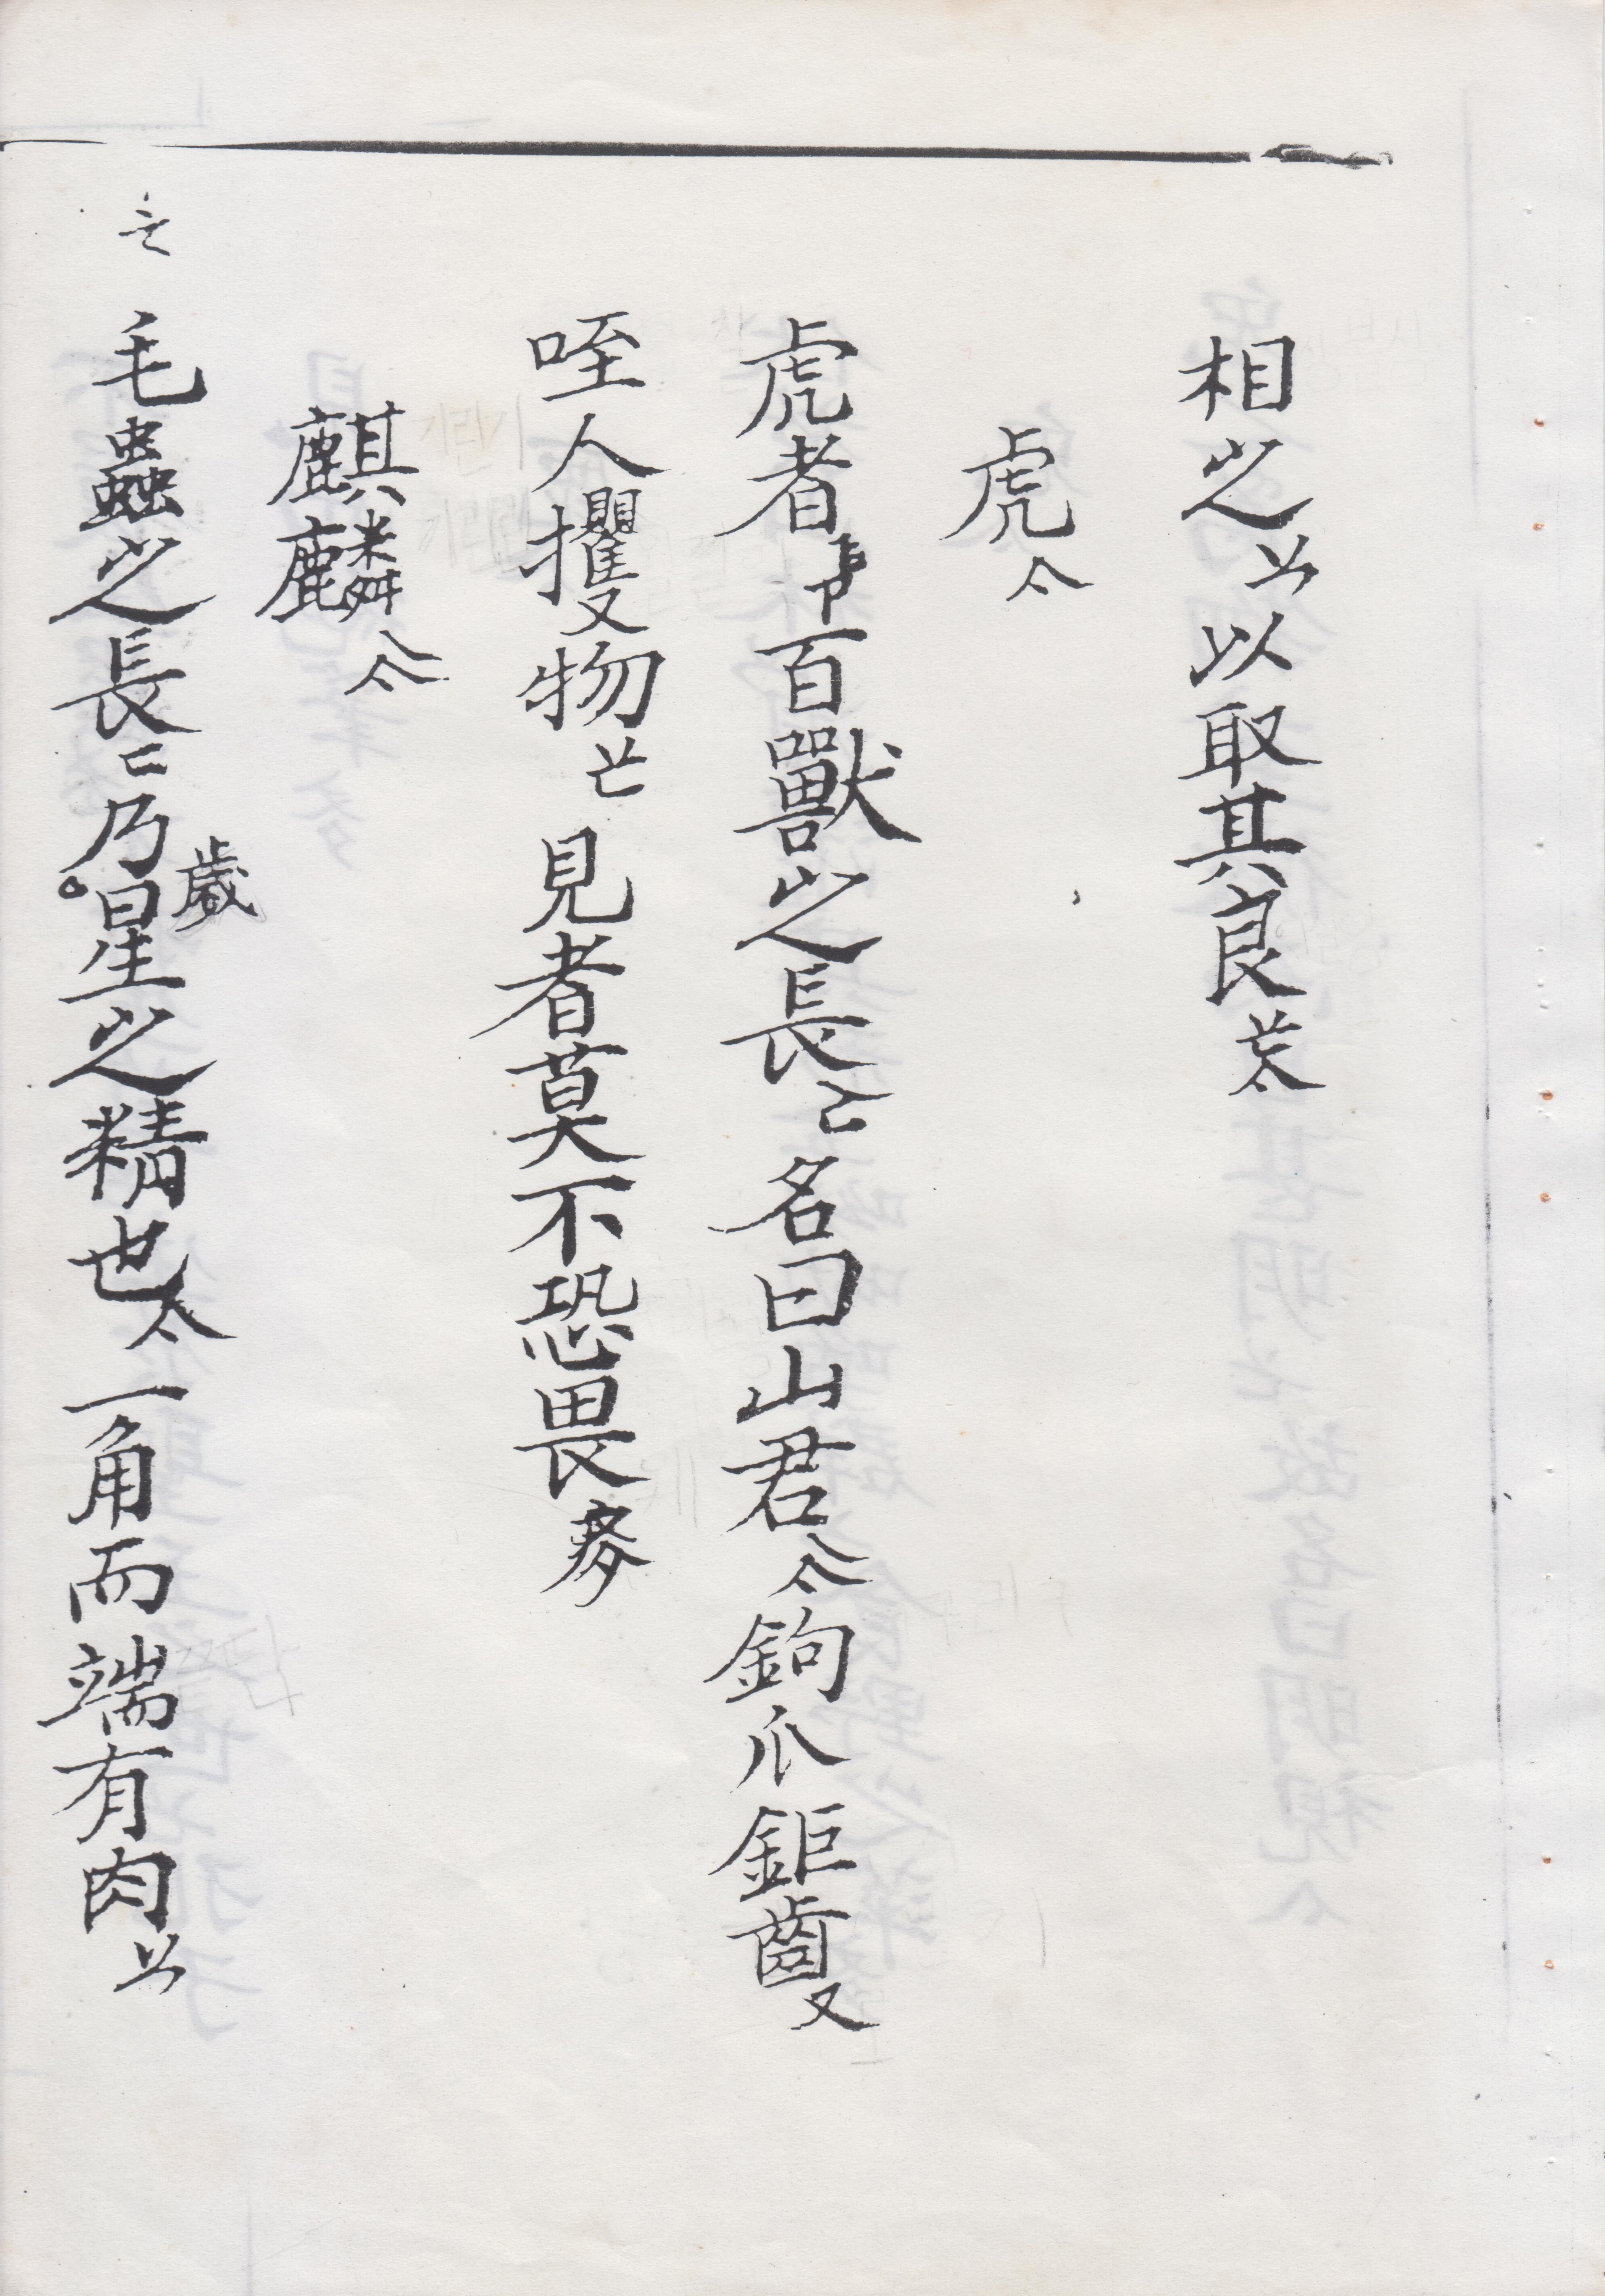 相之〻以取其良
虎亽
虎者百獸之長名曰山君亽鉤爪鉅齒又
咥人攫又物見者莫不恐畏
麒麟亽
毛蟲之長乃歲星之精也一角而端有肉